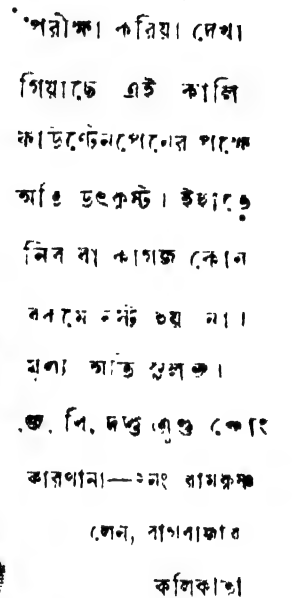 পরীক্ষা করিয়া দেখা
গিয়াছে এই কালি
ফাউন্টেনপেনের পক্ষে
অতি উৎকৃষ্ট। ইহাতে
নিব বা কাগজ কোন
রকমে নষ্ট হয় না।
মূল্য অতি সুলভ।
পি, দত্ত এণ্ড কোং
কারখানা— নং রামকৃষ্ণ
লেন, বাগবাজার
কলিকাতা